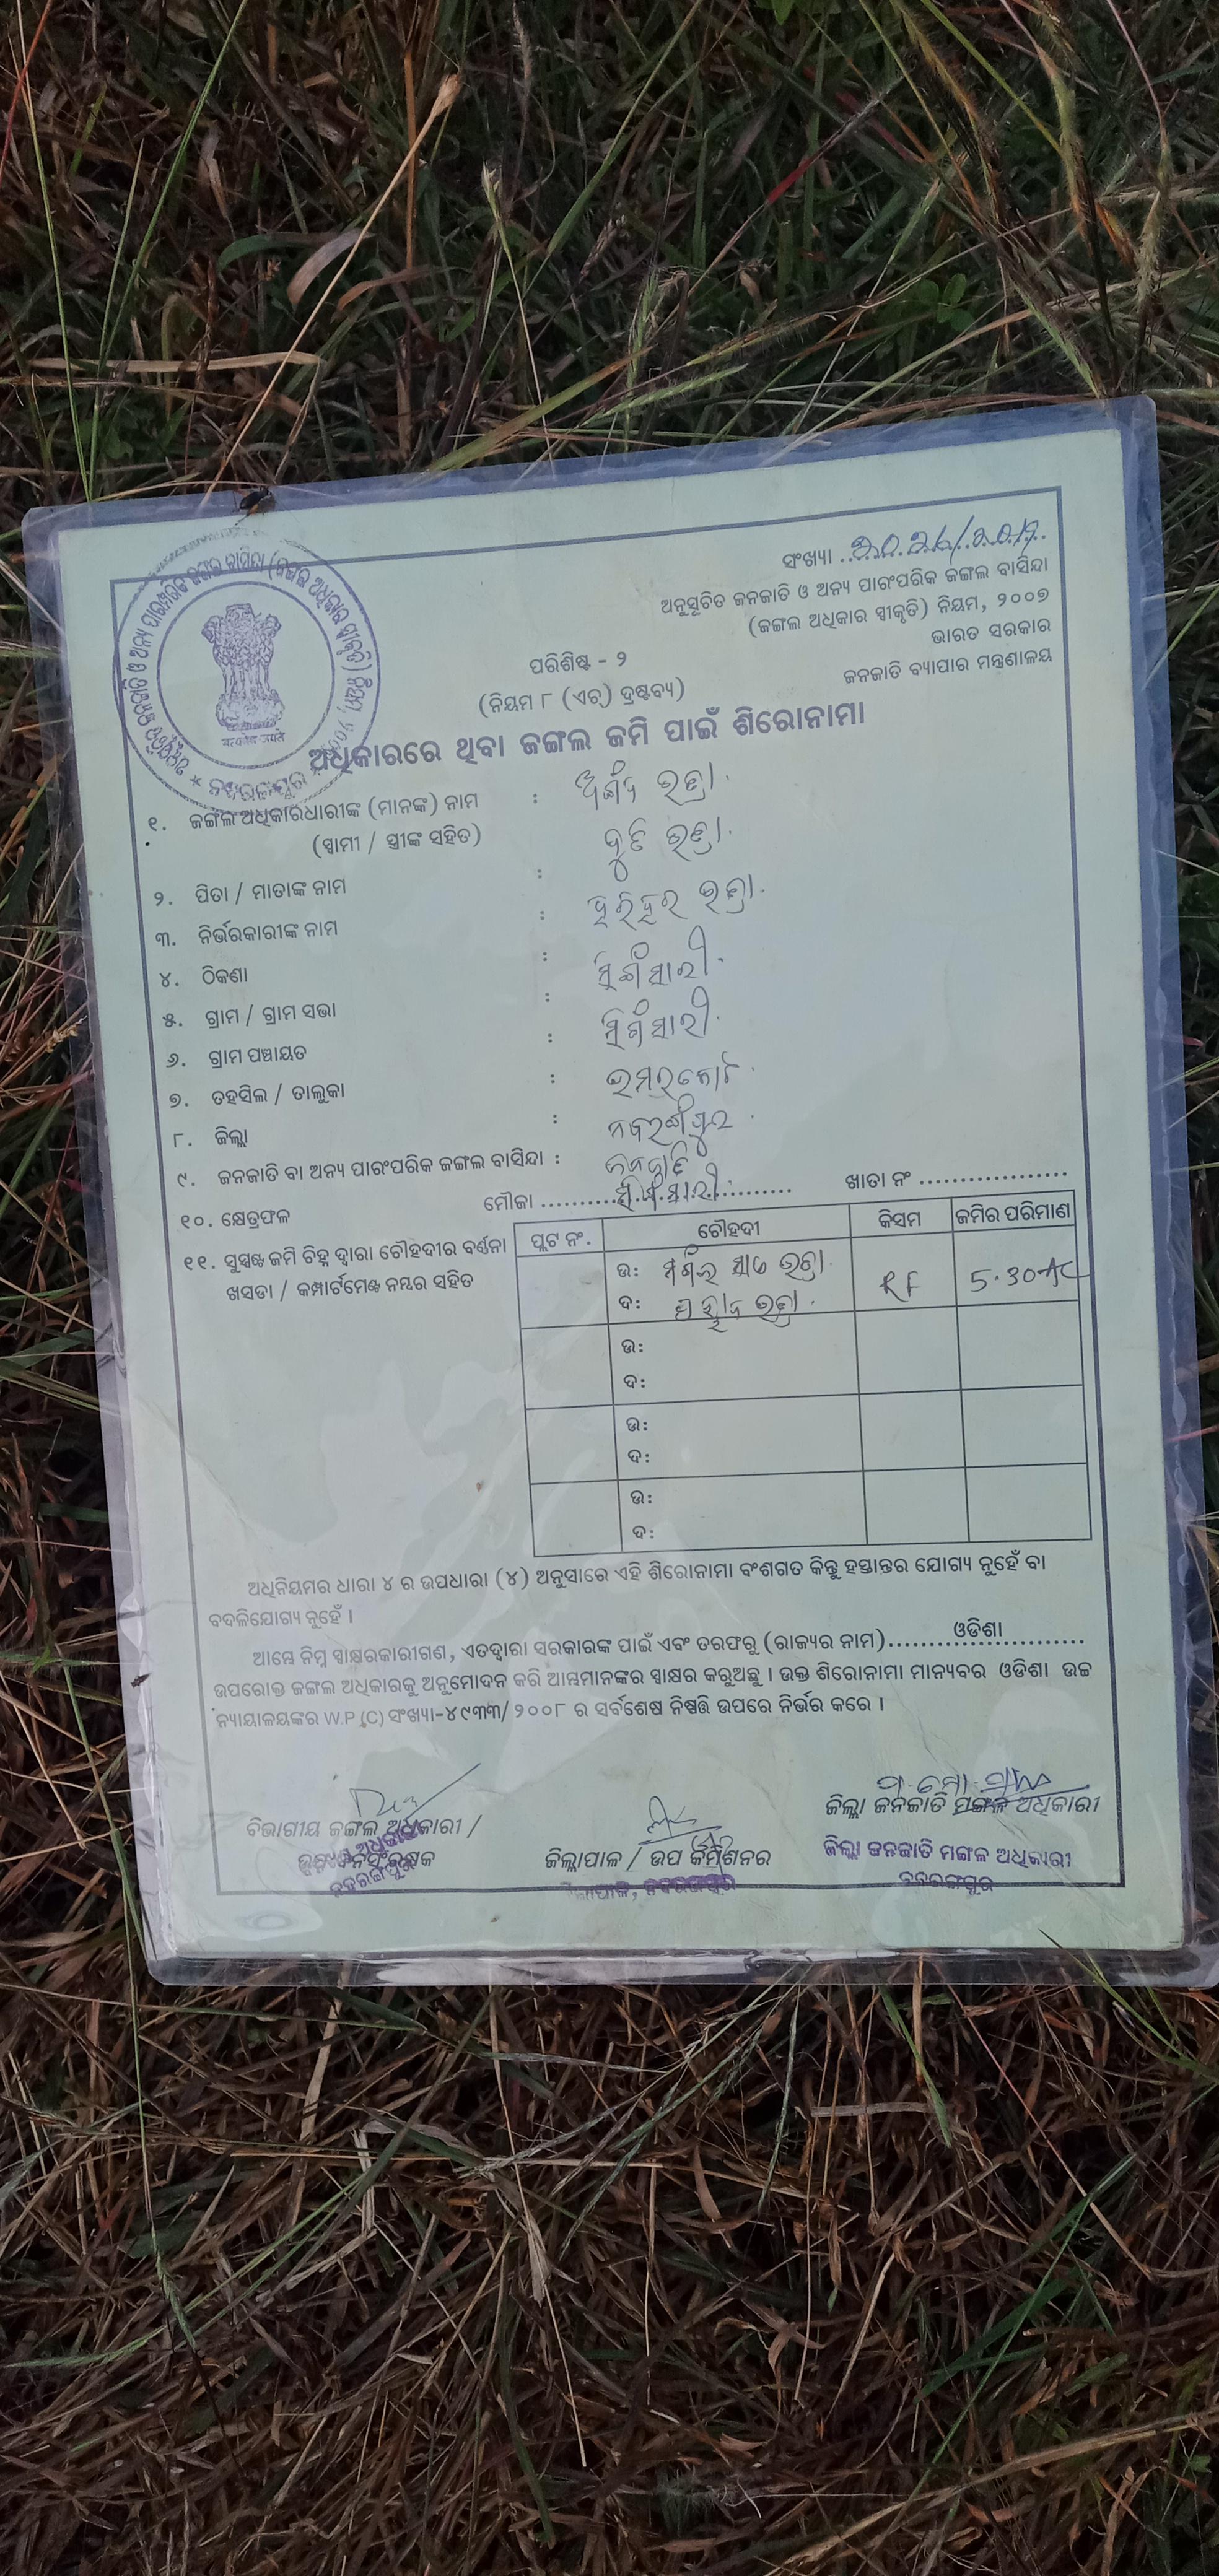 ସଂଖ୍ୟା
ଅନୁସୂଚିତ ଜନଜାତି ଓ ଅନ୍ୟ ପାରଂପରିକ ଜଙ୍ଗଲ ବାସିନ୍ଦା
(ଜଙ୍ଗଲ ଅଧିକାର ସ୍ୱୀକୃତି) ନିୟମ, ୨୦୦୭
ଭାରତ ସରକାର
ଜନଜାତି ବ୍ୟାପାର ମନ୍ତ୍ରଣାଳୟ
ପରିଶିଷ୍ଟ - ୨
(ନିୟମ ୮ (ଏଚ୍) ଦ୍ରଷ୍ଟବ୍ୟ)
ଅଧିକାରରେ ଥିବା ଜଙ୍ଗଲ ଜମି ପାଇଁ ଶିରୋନାମା
सत्यमेव जयते
୧. ଜଙ୍ଗଲ ଅଧିକାରଧାରୀଙ୍କ (ମାନଙ୍କ) ନାମ :
(ସ୍ୱାମୀ / ସ୍ତ୍ରୀଙ୍କ ସହିତ)
୨. ପିତା / ମାତାଙ୍କ ନାମ :
୩. ନିର୍ଭରକାରୀଙ୍କ ନାମ : ହରିହର
୪. ଠିକଣା :
୫. ଗ୍ରାମ / ଗ୍ରାମ ସଭା :
୬. ଗ୍ରାମ ପଞ୍ଚାୟତ :
୭. ତହସିଲ / ତାଲୁକା : ଉମରକୋଟ
୮. ଜିଲ୍ଲା : ନବରଙ୍ଗପୁର
୯. ଜନଜାତି ବା ଅନ୍ୟ ପାରଂପରିକ ଜଙ୍ଗଲ ବାସିନ୍ଦା : ଜନଜାତି
୧୦. କ୍ଷେତ୍ରଫଳ ମୌଜା ଖାତା ନଂ
୧୧. ସୁସ୍ପଷ୍ଟ ଜମି ଚିହ୍ନ ଦ୍ୱାରା ଚୌହଦୀର ବର୍ଣ୍ଣନା
ଖସଡା / କମ୍ପାର୍ଟମେଣ୍ଟ ନମ୍ୱର ସହିତ
ପ୍ଲଟ ନଂ. ଚୌହଦୀ କିସମ ଜମିର ପରିମାଣ
ଉ:
ଦ:
RF 5.30 AC
ଉ:
ଦ:
ଉ:
ଦ:
ଉ:
ଦ:
ଅଧିନିୟମର ଧାରା ୪ ର ଉପଧାରା (୪) ଅନୁସାରେ ଏହି ଶିରୋନାମା ବଂଶଗତ କିନ୍ତୁ ହସ୍ତାନ୍ତର ଯୋଗ୍ୟ ନୁହେଁ ବା
ବଦଳିଯୋଗ୍ୟ ନୁହେଁ ।
ଆମ୍ଭେ ନିମ୍ନ ସ୍ୱାକ୍ଷରକାରୀଗଣ, ଏତଦ୍ୱାରା ସରକାରଙ୍କ ପାଇଁ ଏବଂ ତରଫରୁ (ରାଜ୍ୟର ନାମ) ଓଡିଶା
ଉପରୋକ୍ତ ଜଙ୍ଗଲ ଅଧିକାରକୁ ଅନୁମୋଦନ କରି ଆମ୍ଭମାନଙ୍କର ସ୍ୱାକ୍ଷର କରୁଅଛୁ । ଉକ୍ତ ଶିରୋନାମା ମାନ୍ୟବର ଓଡିଶା ଉଚ୍ଚ
ନ୍ୟାୟାଳୟଙ୍କର W.P.(C) ସଂଖ୍ୟା-୪୯୩୩/ ୨୦୦୮ ର ସର୍ବଶେଷ ନିଷ୍ପତ୍ତି ଉପରେ ନିର୍ଭର କରେ ।
ବିଭାଗୀୟ ଜଙ୍ଗଲ ଅଧିକାରୀ /
ଜିଲ୍ଲାପାଳ / ଉପ କମିଶନର
ଜିଲ୍ଲା ଜନଜାତି ମଙ୍ଗଳ ଅଧିକାରୀ
ଜିଲ୍ଲା ଜନଜାତି ମଙ୍ଗଳ ଅଧିକାରୀ
ନବରଙ୍ଗପୁର